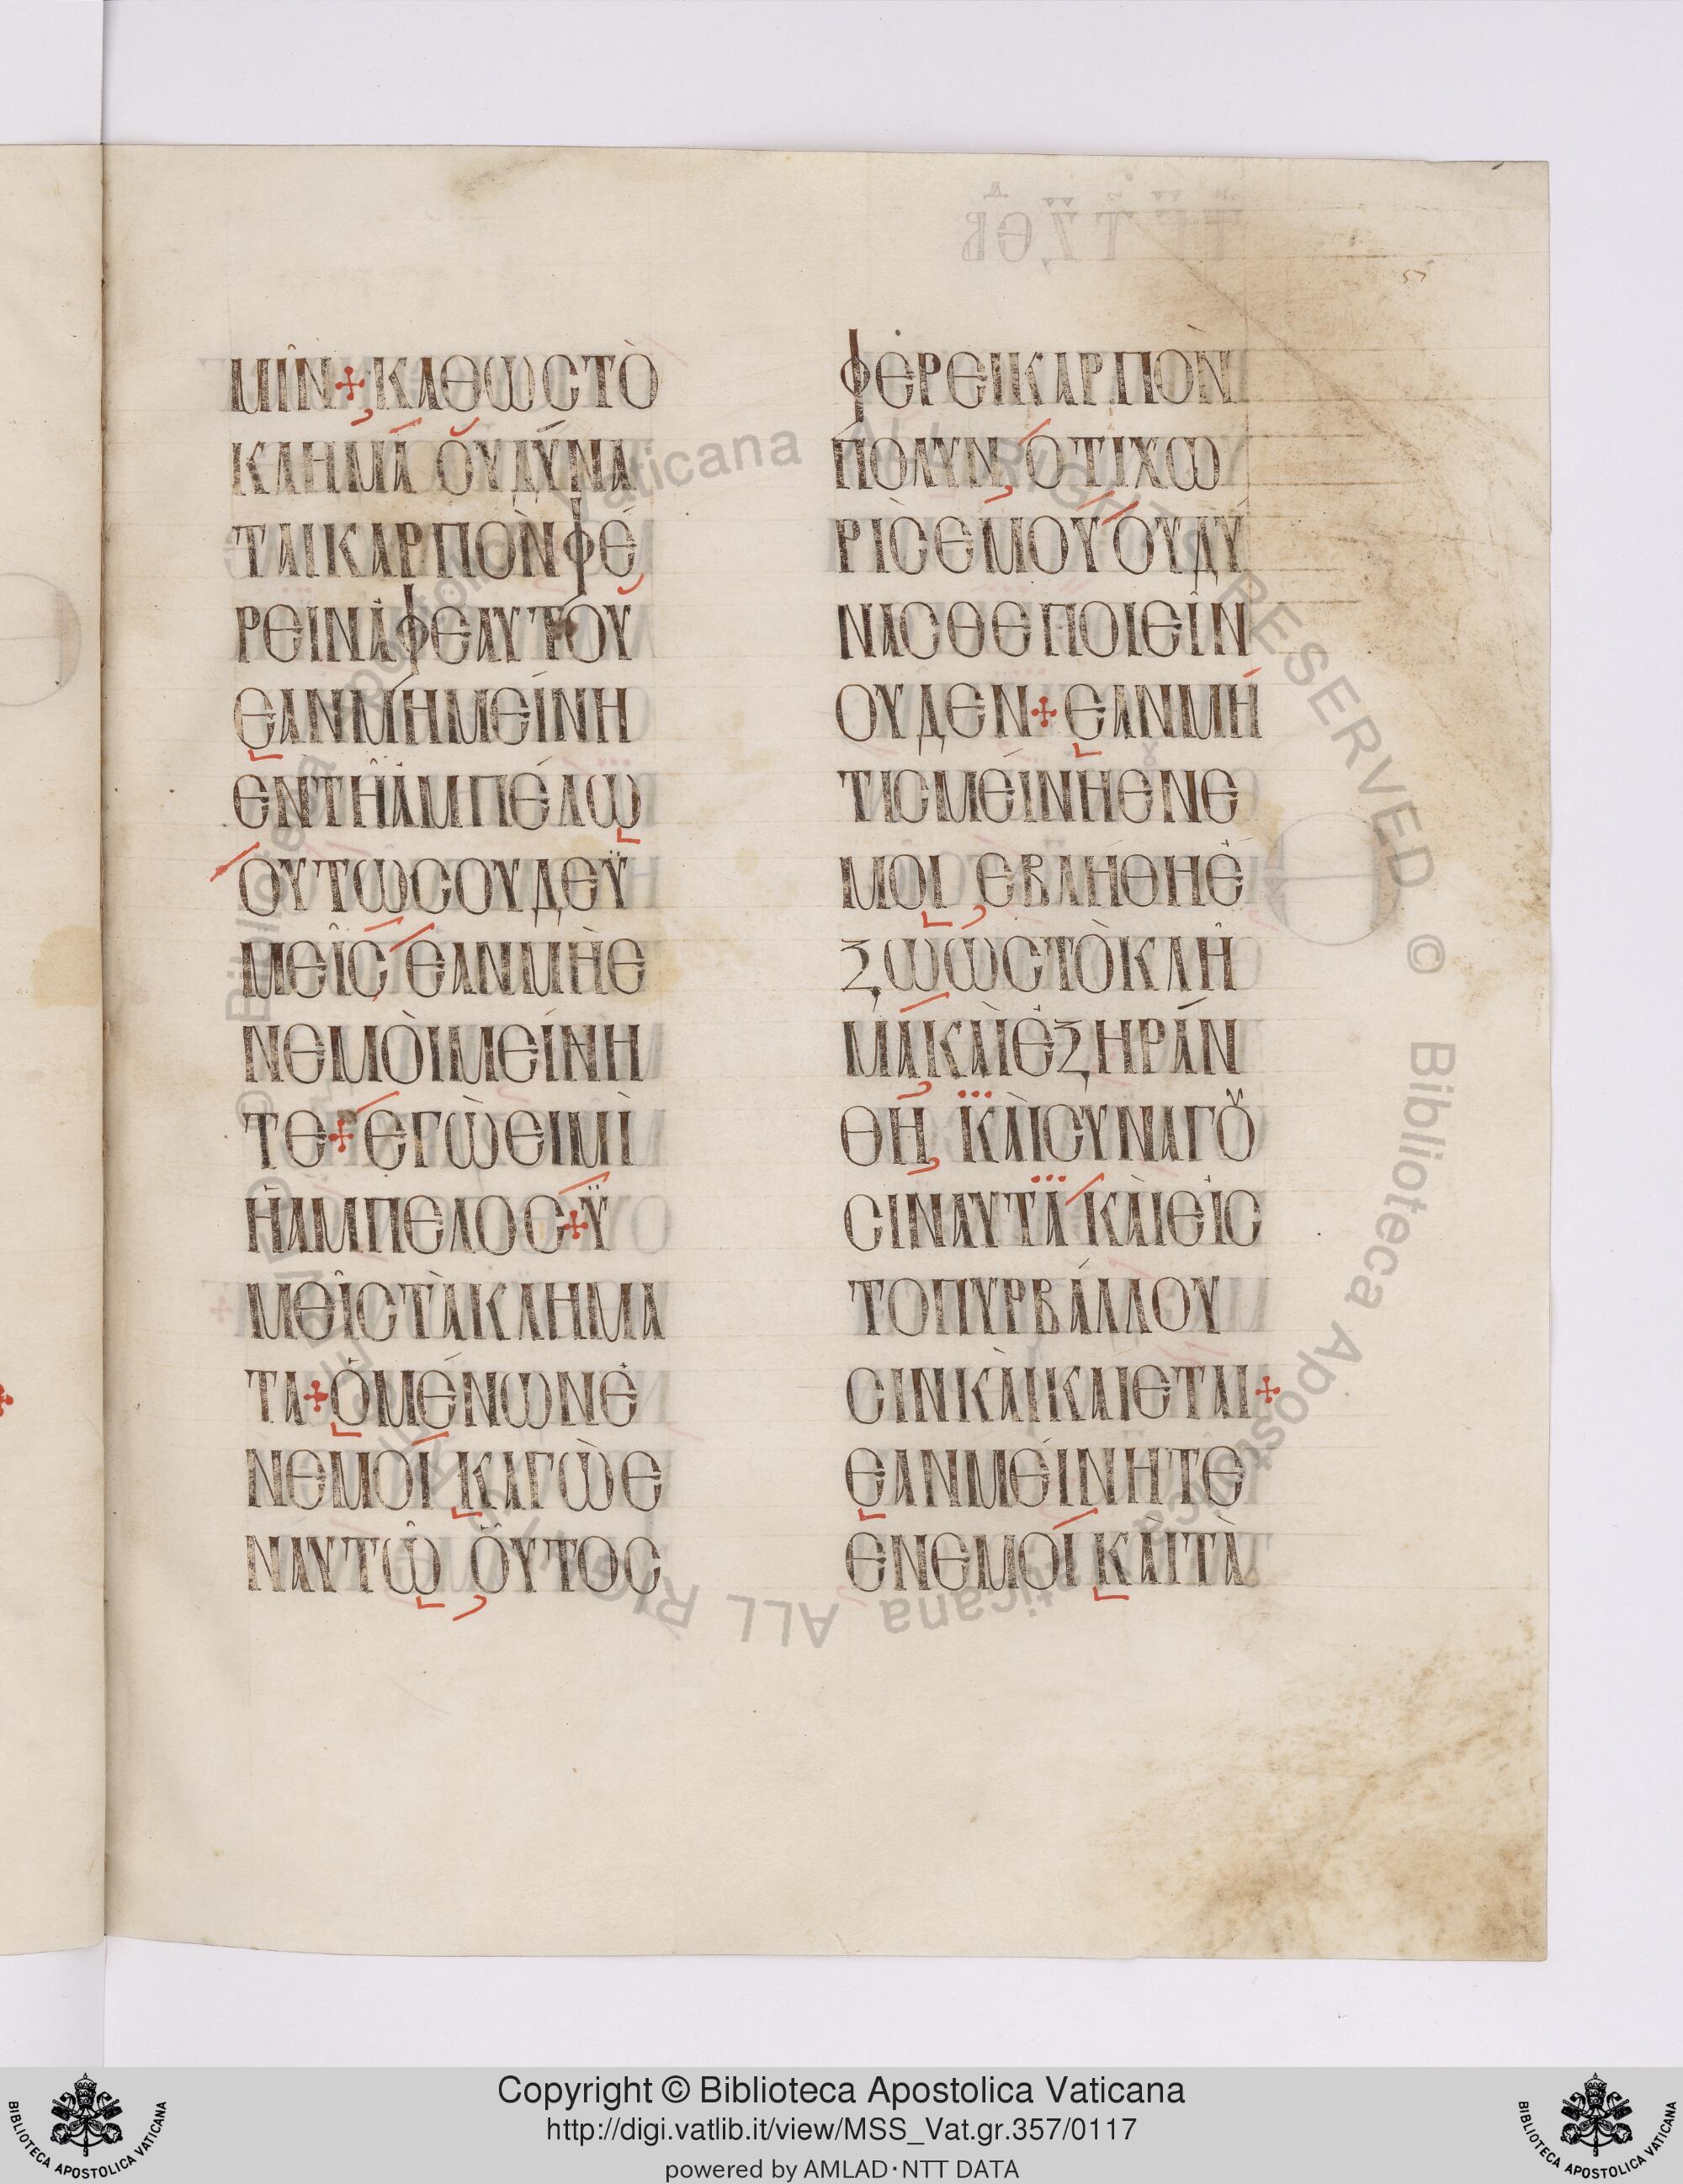 ΜΙ͂Ν + ΚΑΘΩϹΤῸ
ΚΛΗΜΆ ΟΥΔΎΝΑ
ΤΑΙΚΑΡΠῸΝΦΈ
ΡΕΙΝἈΦΕΑΥΤΟΥ
ΕΑΝΜΉΜΕΊΝΗ
ΕΝΤΗ͂ἈΜΠΈΛΩ
ΟΥΤΩϹΟΥΔΕΫ
ΜΕΙ͂Ϲ ΕΑΝΜῊΕ
ΝΕΜΟῚΜΕΊΝΗ
ΤΕ + ΕΓῺΕΙΜῚ
ἩΑΜΠΕΛΟϹ + Ϋ
ΜΕΙ͂ϹΤᾺΚΛΗΜΑ
ΤΑ + ὉΜΈΝΩΝἘ
ΝΕΜΟΊ ΚΑΓῺΕ
ΝΑΥΤΩ͂ ΟΥΤΟϹ
ΦΈΡΕΙΚΑΡΠΟΝ
ΠΟΛΥΝ, ΟΤΙΧΩ
ΡῚϹΕΜΟΥ ΟΥΔΎ
ΝΑϹΘΕΠΟΙΕΙ͂Ν
ΟΥΔΕΝ + ΕΑΝΜΉ
ΤΙϹΜΕΊΝΗΕΝΕ
ΜΟΙ ΕΒΛΉΘΗἘ
ΞΩΩϹΤῸΚΛΗ͂
ΜΑ ΚΑῚἘΞΗΡΆΝ
ΘΗ, ΚΑῚϹΥΝΑΓΟΥ
ϹΙΝΑΥΤΑ ΚΑῚΕἸϹ
ΤΟΠΥΡΒΆΛΛΟΥ
ϹΙΝΚΑῚΚΑΙΕΤΑΙ +
ΕΑΝΜΕΊΝΗΤΕ
ΕΝΕΜΟΊ ΚΑῚΤᾺ
57
Copyright © Biblioteca Apostolica Vaticana
http://digi.vatlib.it/view/MSS_Vat.gr.357/0117
powered by AMLAD·NTT DATA
BIBLIOTECA APOSTOLICA VATICANA
BIBLIOTECA APOSTOLICA VATICANA
© Biblioteca Apostolica Vaticana ALL RIGHTS RESERVED